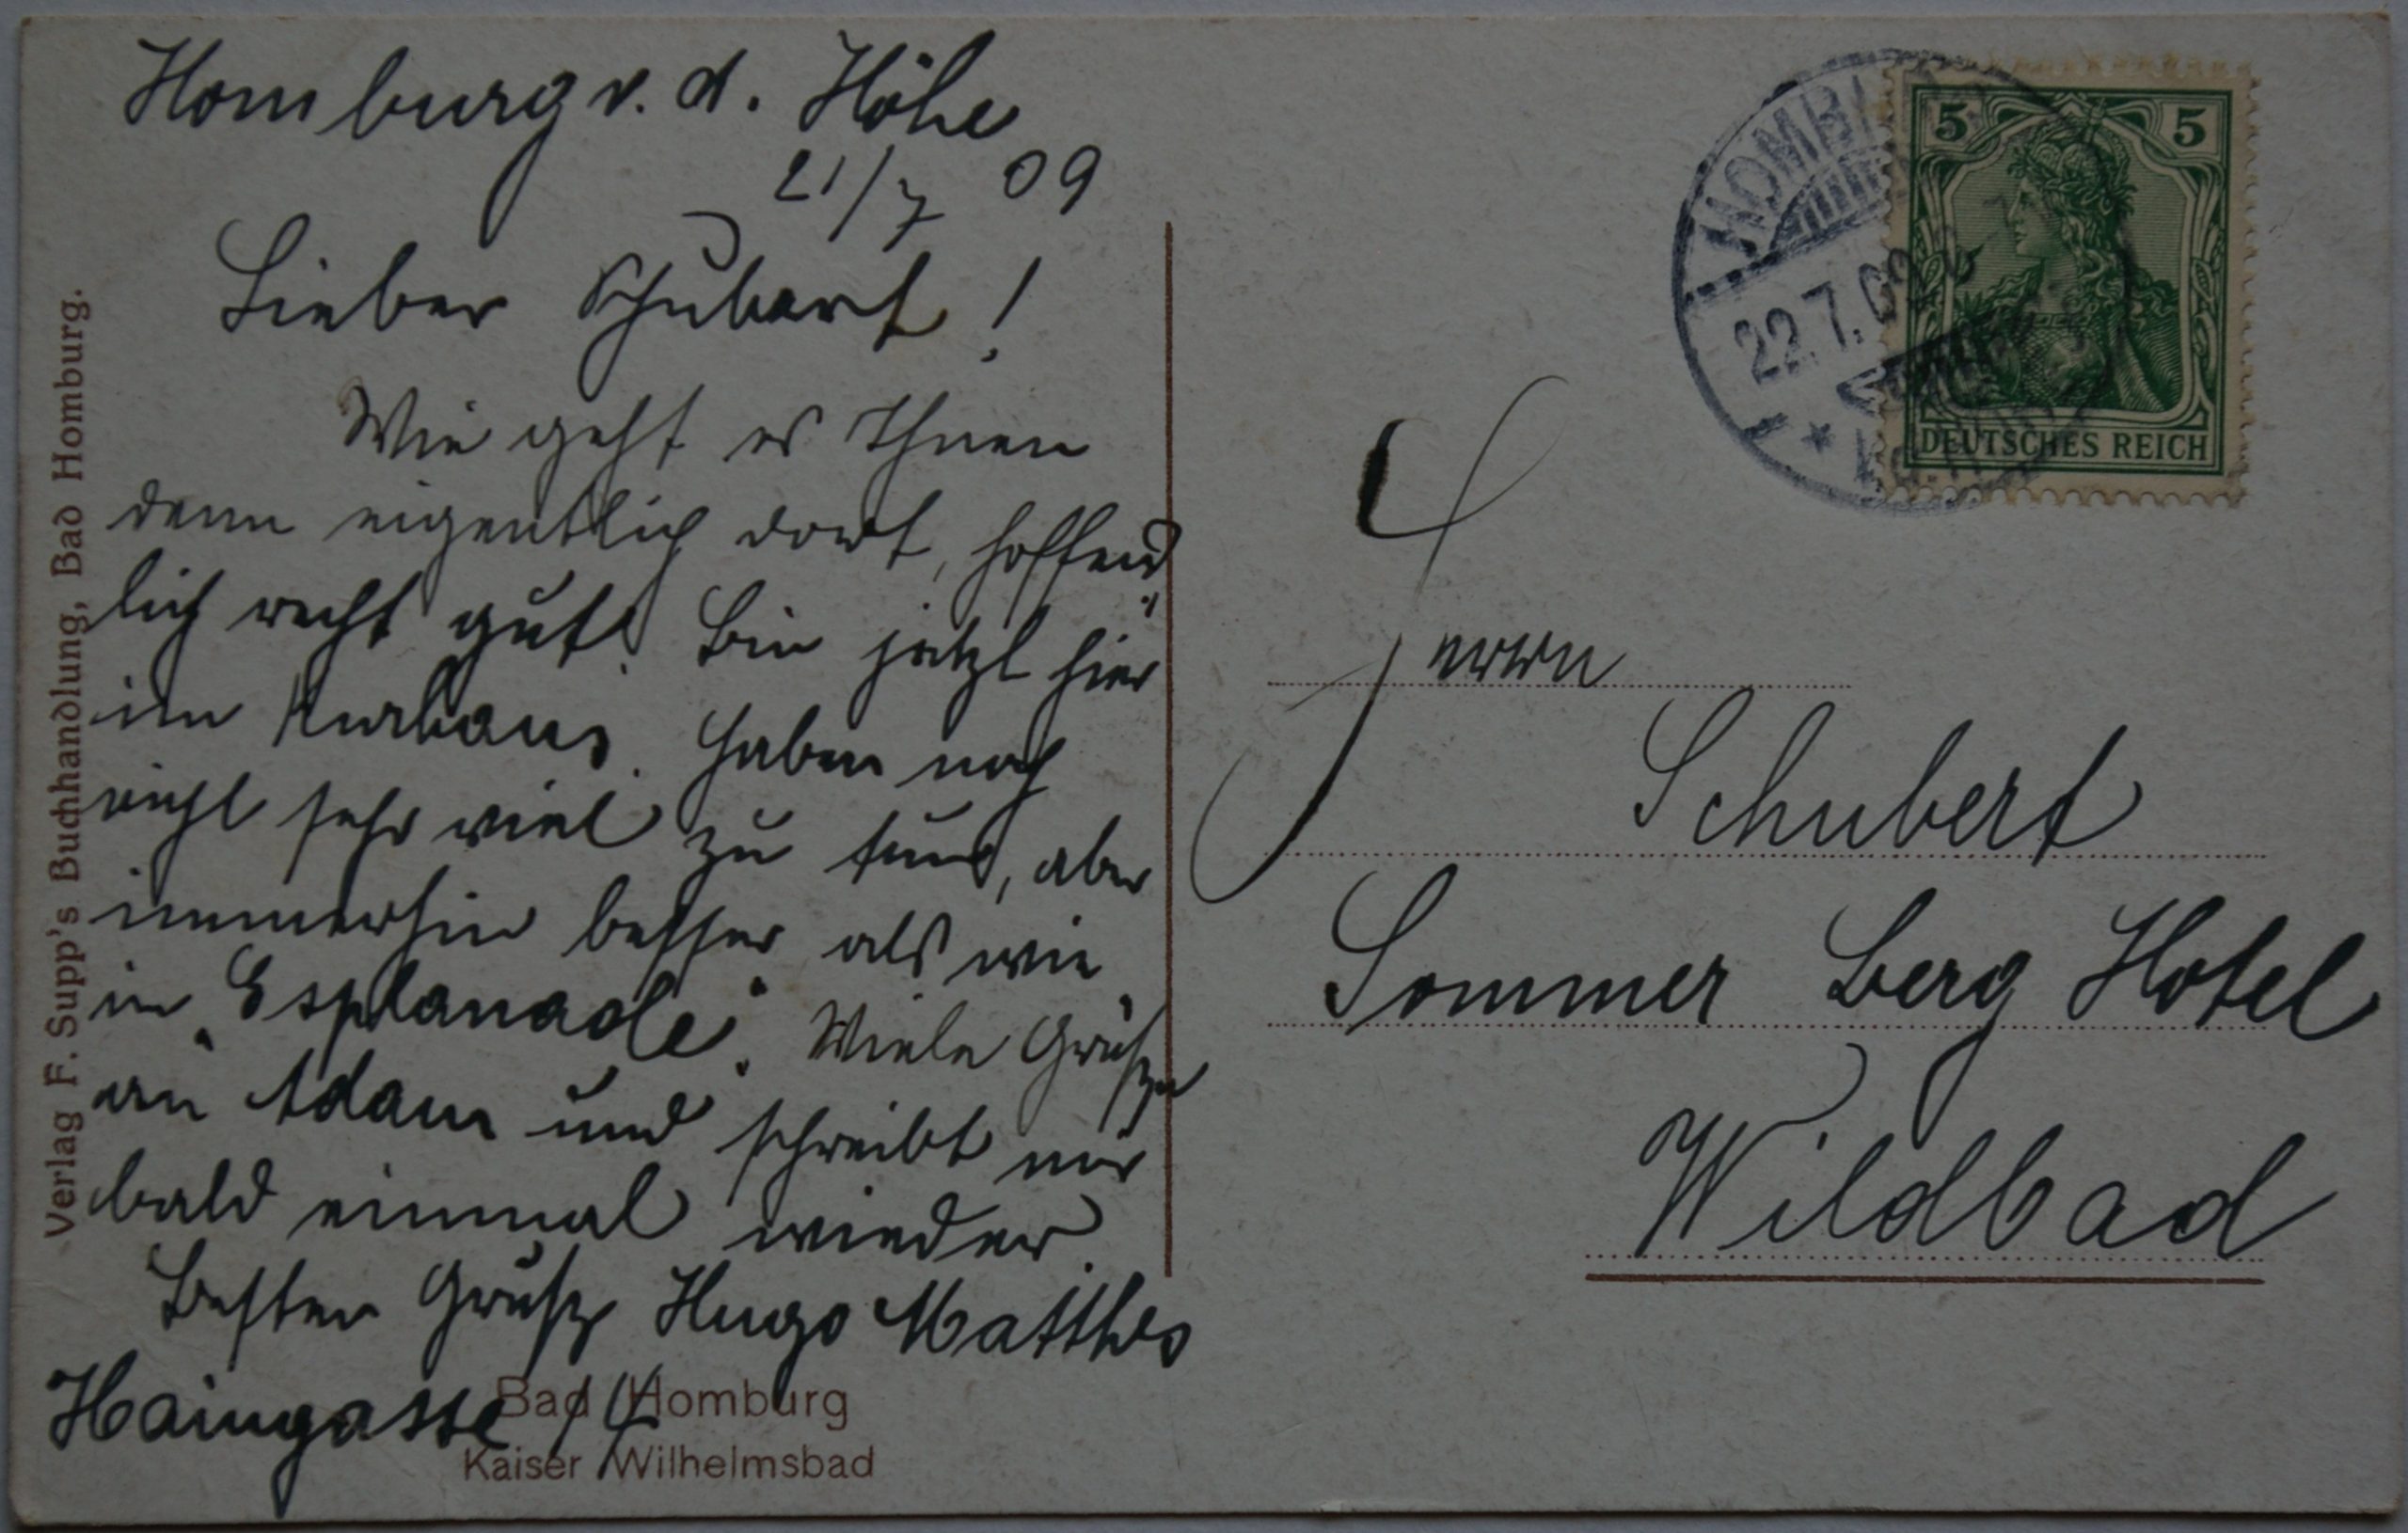 Homburg v. d. Höhe
21/7 09
Lieber Schubert!
Wie geht es Ihnen
denn eigentlich dort, hoffend
lich recht gut! Bin jetzt hier
im Kurhaus. Haben noch
nicht sehr viel zu tun, aber
immerhin besser als wie
im „Esplanade“. Viele Grüße
an Adam und schreibt mir
bald einmal wieder.
Besten Gruß Hugo Matthes
Haingasse 14
Bad Homburg
Kaiser Wilhelmsbad
Verlag F. Supp's Buchhandlung, Bad Homburg.
22.7.09
5 5
DEUTSCHES REICH
Herrn
Schubert
Sommer Berg Hotel
Wildbad